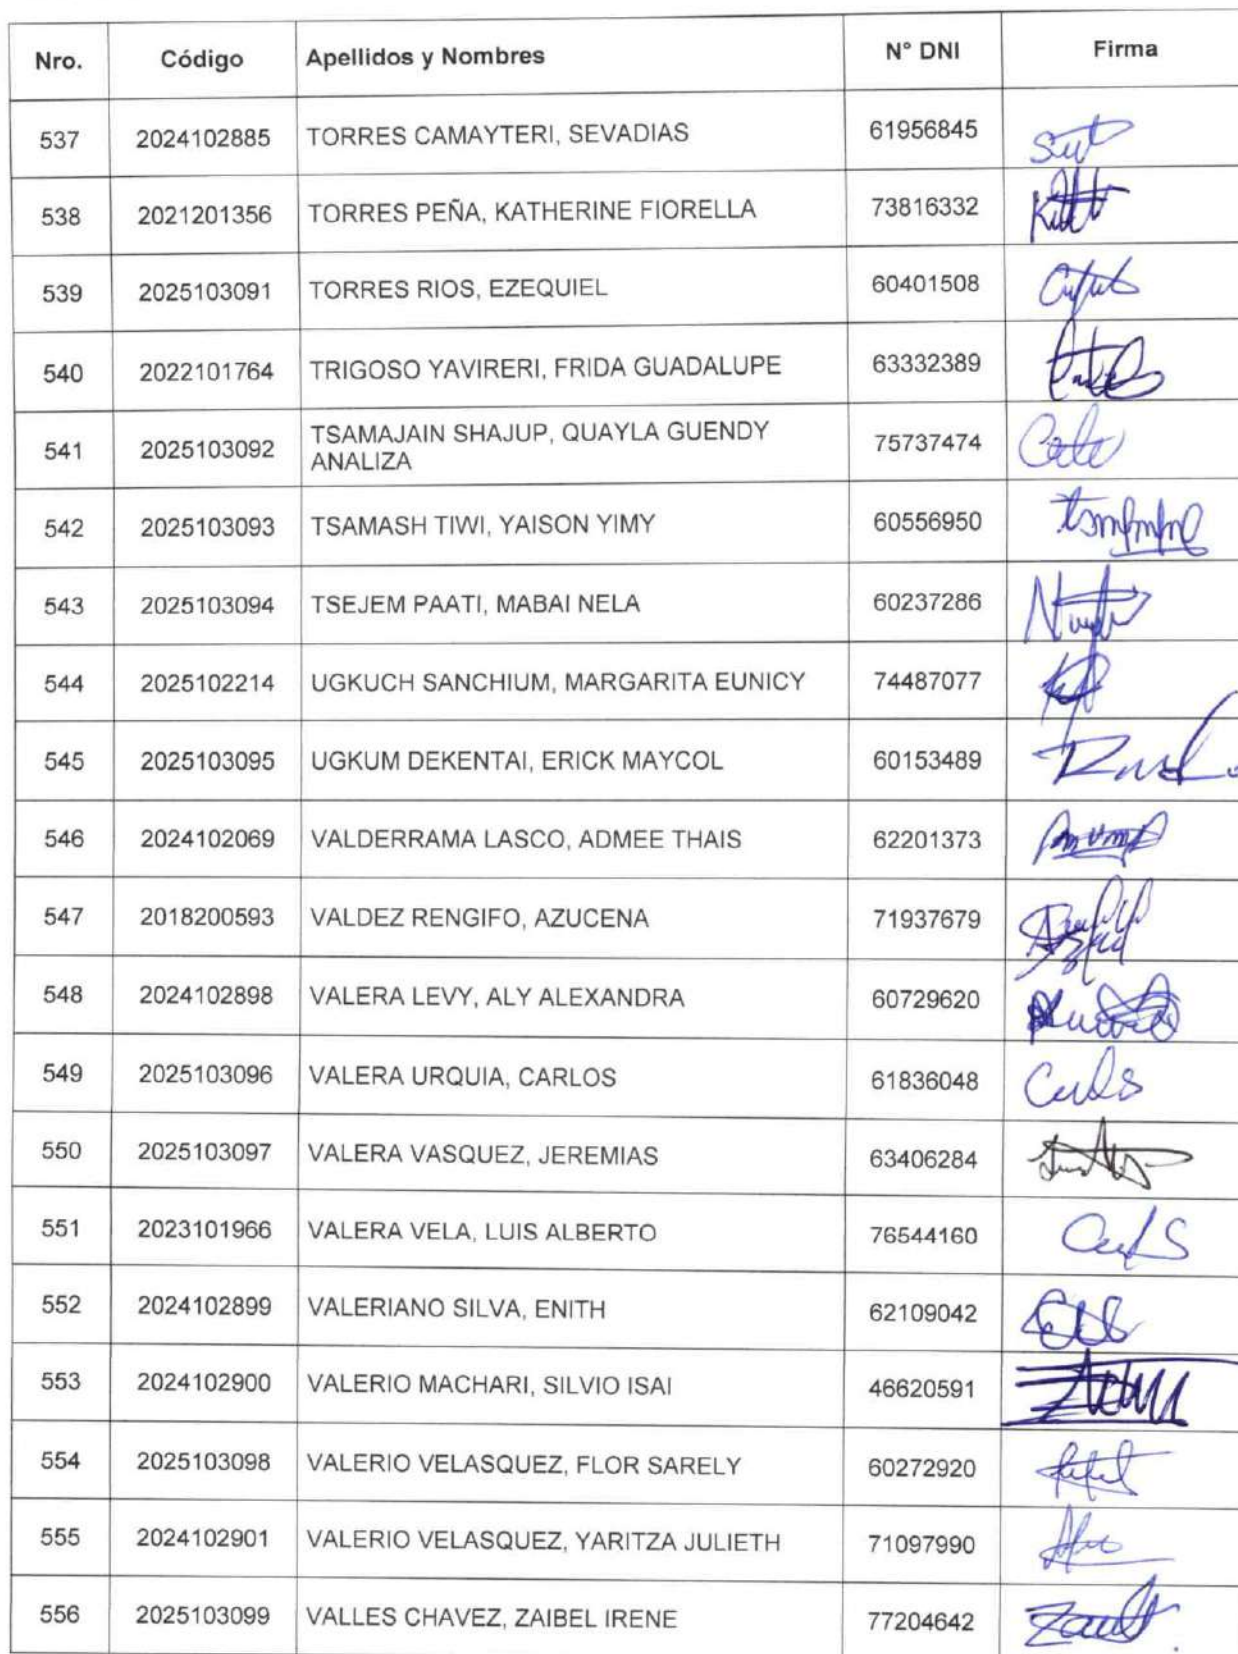 Nro. Código Apellidos y Nombres N° DNI Firma
537 2024102885 TORRES CAMAYTERI, SEVADIAS 61956845
538 2021201356 TORRES PEÑA, KATHERINE FIORELLA 73816332
539 2025103091 TORRES RIOS, EZEQUIEL 60401508
540 2022101764 TRIGOSO YAVIRERI, FRIDA GUADALUPE 63332389
541 2025103092 TSAMAJAIN SHAJUP, QUAYLA GUENDY 75737474
ANALIZA
542 2025103093 TSAMASH TIWI, YAISON YIMY 60556950
543 2025103094 TSEJEM PAATI, MABAI NELA 60237286
544 2025102214 UGKUCH SANCHIUM, MARGARITA EUNICY 74487077
545 2025103095 UGKUM DEKENTAI, ERICK MAYCOL 60153489
546 2024102069 VALDERRAMA LASCO, ADMEE THAIS 62201373
547 2018200593 VALDEZ RENGIFO, AZUCENA 71937679
548 2024102898 VALERA LEVY, ALY ALEXANDRA 60729620
549 2025103096 VALERA URQUIA, CARLOS 61836048
550 2025103097 VALERA VASQUEZ, JEREMIAS 63406284
551 2023101966 VALERA VELA, LUIS ALBERTO 76544160
552 2024102899 VALERIANO SILVA, ENITH 62109042
553 2024102900 VALERIO MACHARI, SILVIO ISAI 46620591
554 2025103098 VALERIO VELASQUEZ, FLOR SARELY 60272920
555 2024102901 VALERIO VELASQUEZ, YARITZA JULIETH 71097990
556 2025103099 VALLES CHAVEZ, ZAIBEL IRENE 77204642